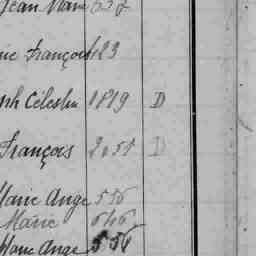 Jean Marie 632
ne François 123
ph Célestin 1819 D
François 2051 D
Marie Ange 556
Marie 646
Marie Ange 556